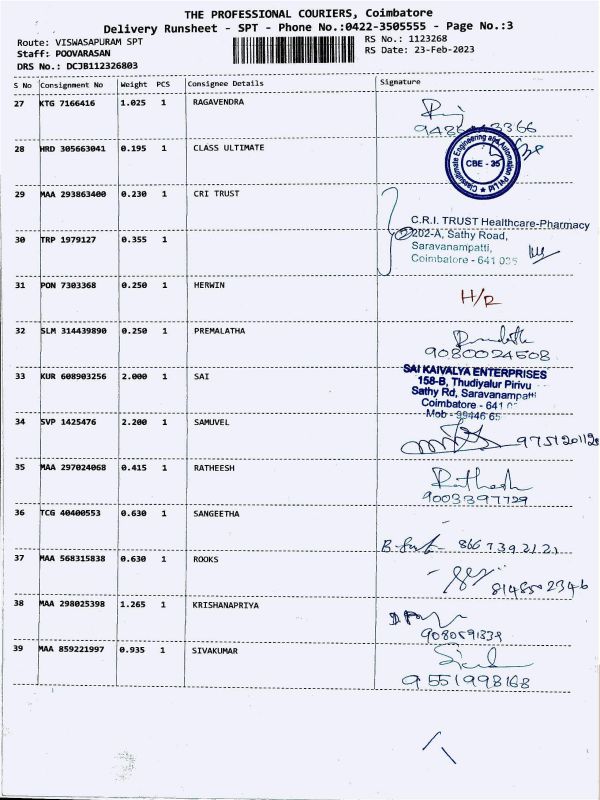 THE PROFESSIONAL COURIERS, Coimbatore
Delivery Runsheet - SPT - Phone No.:0422-3505555 - Page No.:3
Route: VISWASAPURAM SPT
RS No.: 1123268
Staff: POOVARASAN
RS Date: 23-Feb-2023
DRS No.: DCJB112326803
S No Consignment No Weight PCS Consignee Details Signature
27 KTG 7166416 1.025 1 RAGAVENDRA
28 HRD 305663041 0.195 1 CLASS ULTIMATE
Classimate Engineering and Automation Pvt Ltd
CBE - 35
29 MAA 293863400 0.230 1 CRI TRUST
C.R.I. TRUST Healthcare-Pharmacy
202-A, Sathy Road,
30 TRP 1979127 0.355 1
Saravanampatti,
Coimbatore - 641 035
31 PON 7303368 0.250 1 HERWIN
H/R
32 SLM 314439890 0.250 1 PREMALATHA
9080024508
33 KUR 608903256 2.000 1 SAI
SAI KAIVALYA ENTERPRISES
158-B, Thudiyalur Pirivu
Sathy Rd, Saravanampatti
Coimbatore - 641
Mob - 99446 65
34 SVP 1425476 2.200 1 SAMUVEL
35 MAA 297024068 0.415 1 RATHEESH
Ratheesh
9003397729
36 TCG 40400553 0.630 1 SANGEETHA
866 7392121
37 MAA 568315838 0.630 1 ROOKS
8148502346
38 MAA 298025398 1.265 1 KRISHANAPRIYA
9080591339
39 MAA 859221997 0.935 1 SIVAKUMAR
9551998168